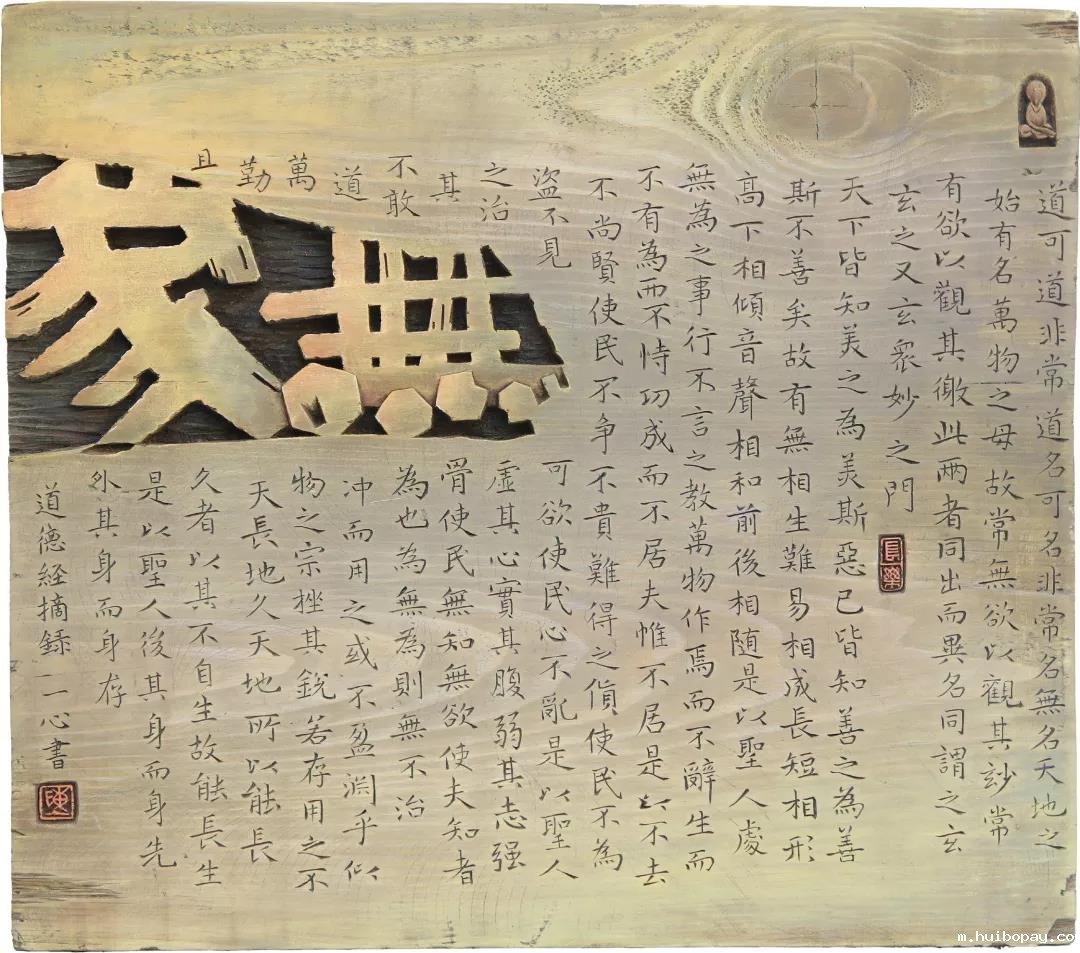 道可道非常道名可名非常名無名天地之
始有名萬物之母故常無欲以觀其玅常
有欲以觀其徼此兩者同出而異名同謂之玄
玄之又玄眾妙之門
長樂
天下皆知美之為美斯惡已皆知善之為善
斯不善矣故有無相生難易相成長短相形
高下相傾音聲相和前後相随是以聖人處
無為之事行不言之教萬物作焉而不辭生而
不有為而不恃功成而不居夫惟不居是以不去
不尚賢使民不争不貴難得之貨使民不為
盜不見可欲使民心不亂是以聖人
之治虛其心實其腹弱其志强
其骨使民無知無欲使夫知者
不敢為也為無為則無不治
道冲而用之或不盈淵乎似
萬物之宗挫其銳若存用之不
勤天長地久天地所以能長
且久者以其不自生故能長生
是以聖人後其身而身先
外其身而身存
道德經摘録 一心書
陳
無象
m.huibopay.co